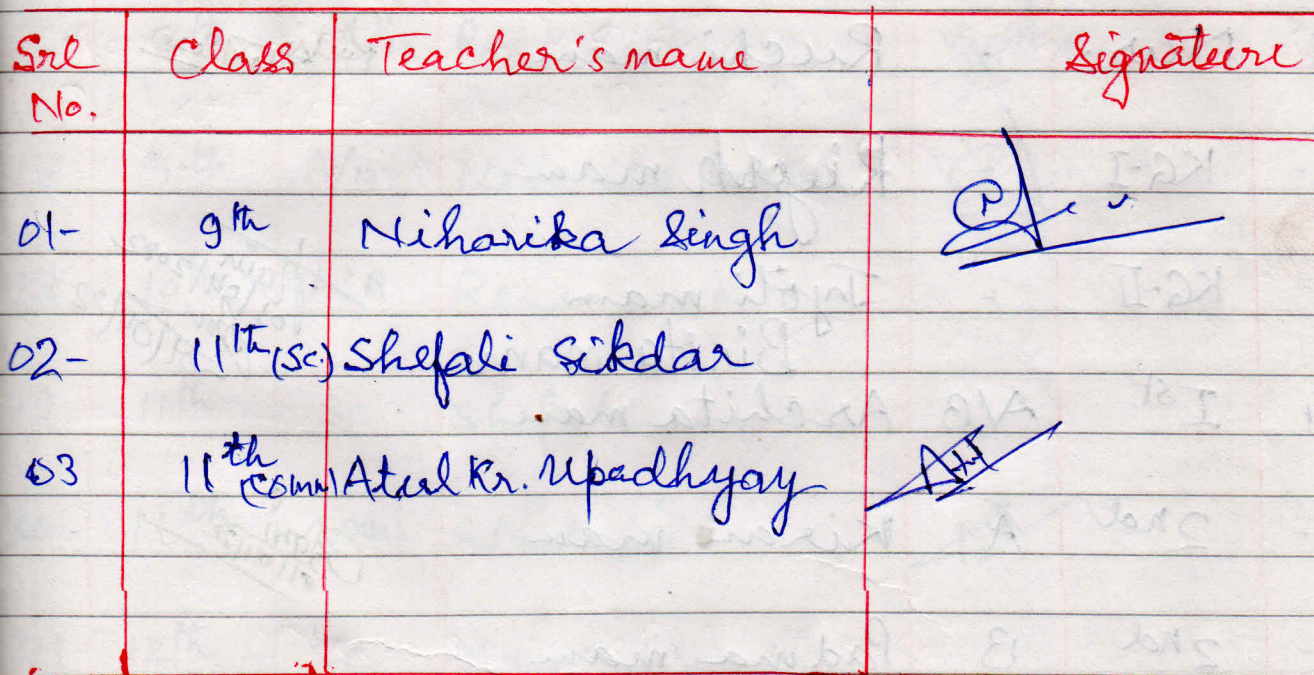 Srl No. Class Teacher's name Signature
01- 9th Niharika Singh
02- 11th (Sc.) Shefali Sikdar
03 11th (Comm) Atul Kr. Upadhyay Atul